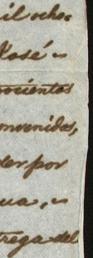 mil ocho-
José =
ocientos
onvenidas,
der por
ua, =
trega del